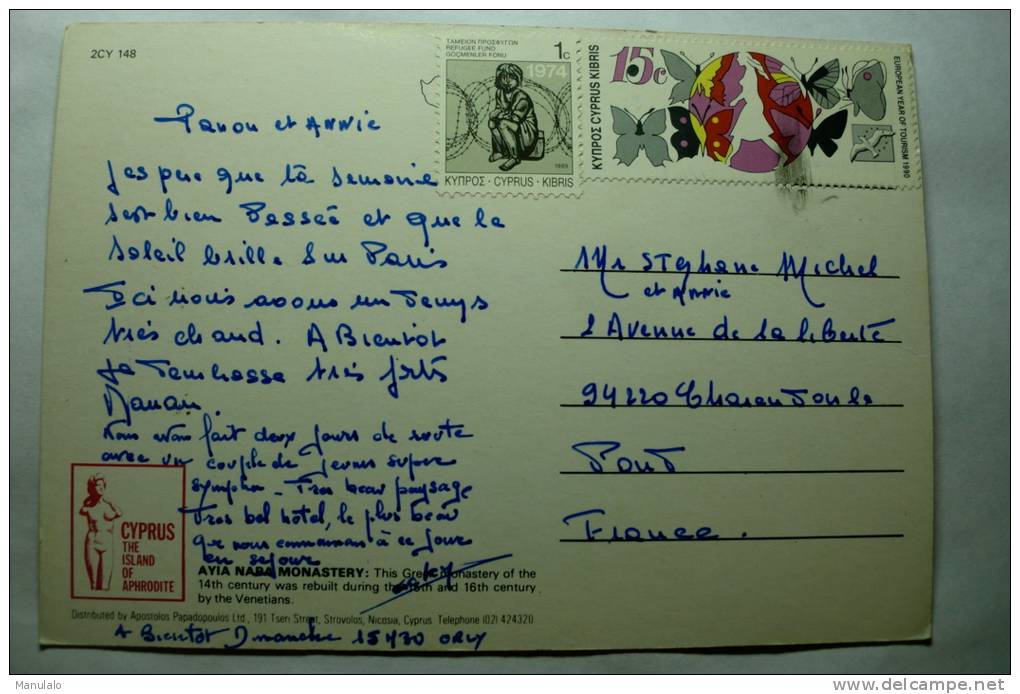 2CY 148
ΤΑΜΕΙΟΝ ΠΡΟΣΦΥΓΩΝ
REFUGEE FUND
GÖÇMENLER FONU
1c
1974
1989
ΚΥΠΡΟΣ · CYPRUS · KIBRIS
15c
ΚΥΠΡΟΣ CYPRUS KIBRIS
EUROPEAN YEAR OF TOURISM 1990
et ANNIE
J'espere que ta semaine
s'est bien Passeé et que le
soleil brille sur Paris
Ici nous avons un Temps
très chaud. A Bientot
Je T'embrasse très forts
Maman.
Nous avons fait deux jours de route
avec un couple de jeunes super
sympha - Tres beau paysage
Tres bel hôtel, le plus beau
que nous connaissons à ce jour
en sejour
Mr Stephane Michel
et ANNIE
2 Avenue de la liberté
94220 Charenton le
Pont
France.
CYPRUS
THE
ISLAND
OF
APHRODITE
AYIA NAPA MONASTERY: This Greek monastery of the
14th century was rebuilt during the 15th and 16th century
by the Venetians.
Distributed by Apostolos Papadopoulos Ltd., 191 Tseri Street, Strovolos, Nicosia, Cyprus Telephone (02) 424320
A Bientot Dimanche 15H30 ORLY
Manulalo
delcampe.net